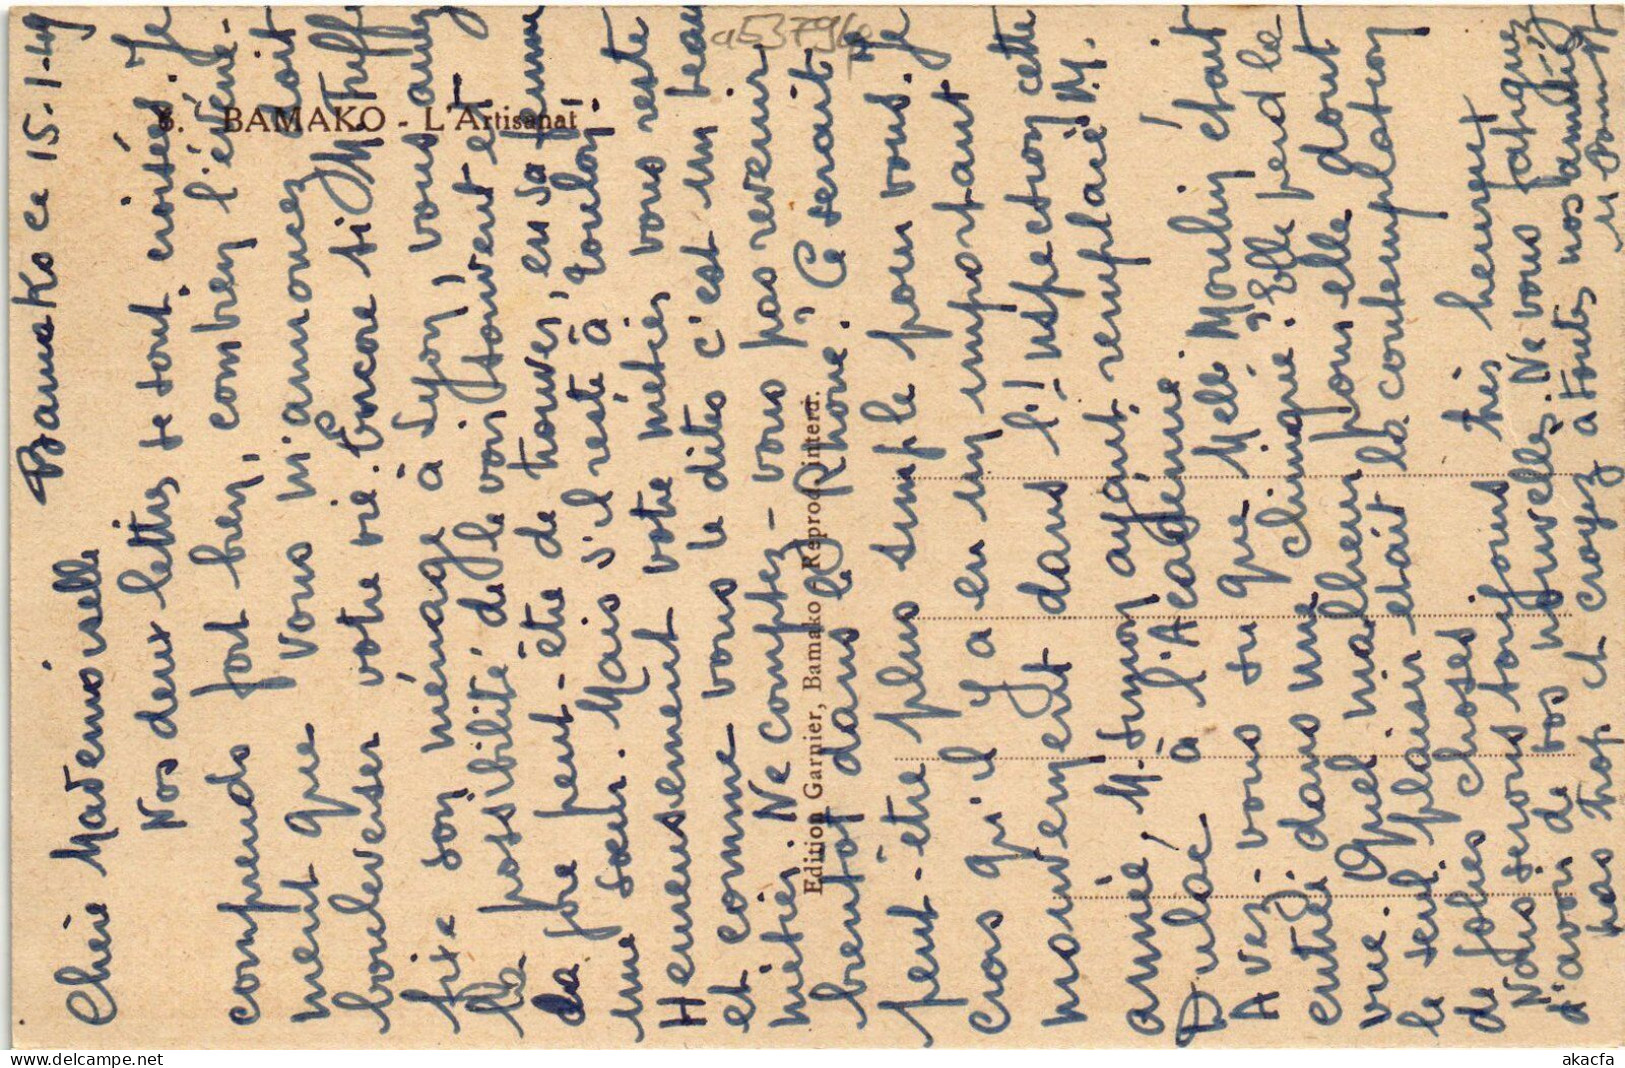 Bamako ce 15-1-49
Chère Mademoiselle
Nos deux lettres se sont croisées. Je
comprends fort bien, combien l'évène-
ment que vous m'annoncez doit
bouleverser votre vie. Encore si M Truff
fixe son ménage à Lyon, vous avez
la possibilité de le voir souvent et
la joie peut-être de trouver, en sa femme
une sœur. Mais s'il reste à Toulon!
Heureusement votre métier vous reste
et comme vous le dites c'est un beau
métier. Ne comptez-vous pas revenir
bientôt dans le Rhône? Ce serait
peut-être plus simple pour vous. Je
crois qu'il y a eu un important
mouvement dans l'Inspection cette
année, M. Simon ayant remplacé M.
Dulac à l'Académie!
Avez-vous su que Melle Moulin était
entrée dans une clinique? Elle perd la
vue. Quel malheur pour elle dont
le seul plaisir était la contemplation
de jolies choses
Nous serons toujours très heureux
d'avoir de vos nouvelles. Ne vous fatiguez
pas trop et croyez à toutes nos amitiés
8. BAMAKO - L'Artisanat
Edition Garnier, Bamako Reprod. interd.
a537940
akacfa
delcampe.net